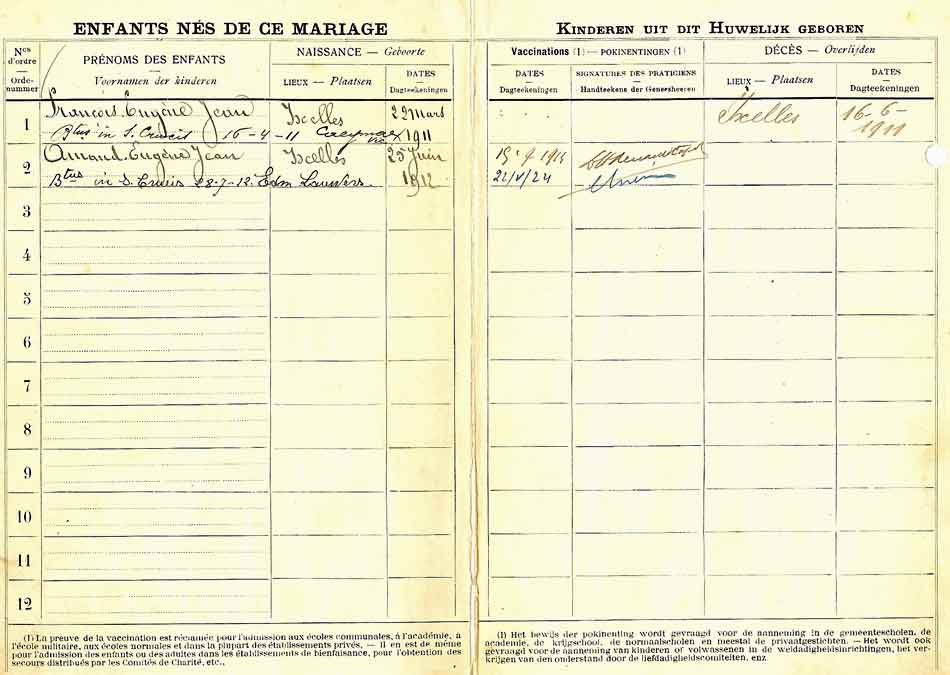 ENFANTS NÉS DE CE MARIAGE
KINDEREN UIT DIT HUWELIJK GEBOREN
Nos d'ordre — Orde-nummer
PRÉNOMS DES ENFANTS — Voornamen der kinderen
NAISSANCE — Geboorte
LIEUX — Plaatsen
DATES — Dagteekeningen
Vaccinations (1) — POKINENTINGEN (1)
DATES — Dagteekeningen
SIGNATURES DES PRATICIENS — Handteekens der Geneesheeren
DÉCÈS — Overlijden
LIEUX — Plaatsen
DATES — Dagteekeningen
1 François Eugène Jean Ixelles 22 Mars 1911 Ixelles 16-6-1911
Btus in S. Crucis 16-4-11
2 Armand Eugène Jean Ixelles 25 Juin 1912
Btus in S. Crucis 28-7-12 Edm Lauwers 22/V/24
3
4
5
6
7
8
9
10
11
12
(1) La preuve de la vaccination est réclamée pour l'admission aux écoles communales, à l'académie, à
l'école militaire, aux écoles normales et dans la plupart des établissements privés. — Il en est de même
pour l'admission des enfants ou des adultes dans les établissements de bienfaisance, pour l'obtention des
secours distribués par les Comités de Charité, etc.,
(1) Het bewijs der pokinenting wordt gevraagd voor de aanneming in de gemeentescholen, de
academie, de krijgschool, de normaalscholen en meestal de privaatgestichten. — Het wordt ook
gevraagd voor de aanneming van kinderen of volwassenen in de weldadigheidsinrichtingen, het ver-
krijgen van den onderstand door de liefdadigheidscomiteiten, enz